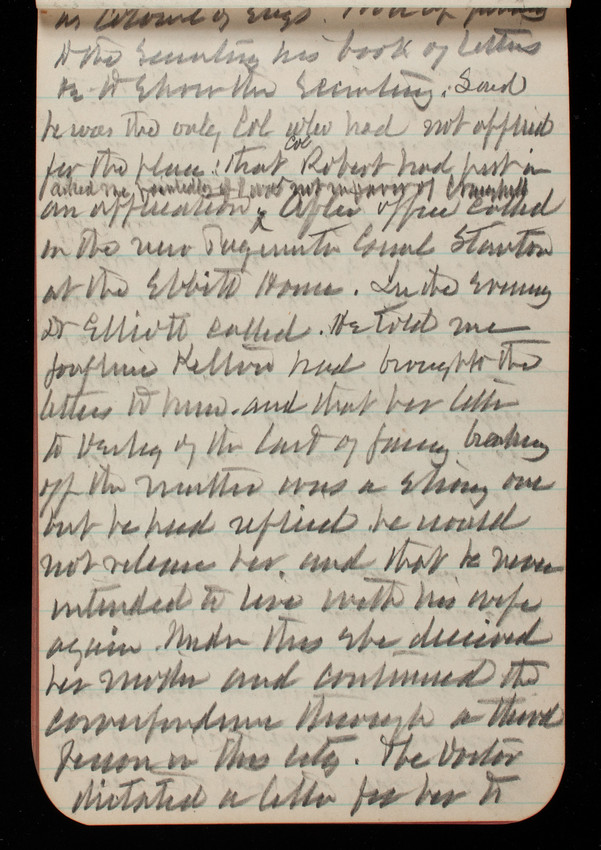 as Colonel of Engs.
to the Secretary his book of letters
to show the Secretary. Said
he was the only Col who had not applied
for the place: that Col Robert had put in
asked me was not in favor of Craighill
an application. After office called
on the new
at the Ebbitt House. In the evening
Dr Elliott called. He told me
Josephine Kelton had brought the
letters to him. and that her letter
to of the last of breaking
off the matter was a strong one
but he had replied he would
not release her and that he never
intended to live with his wife
again. Under this she deceived
her mother and continued the
correspondence through a third
person in this city. The Doctor
dictated a letter for her to